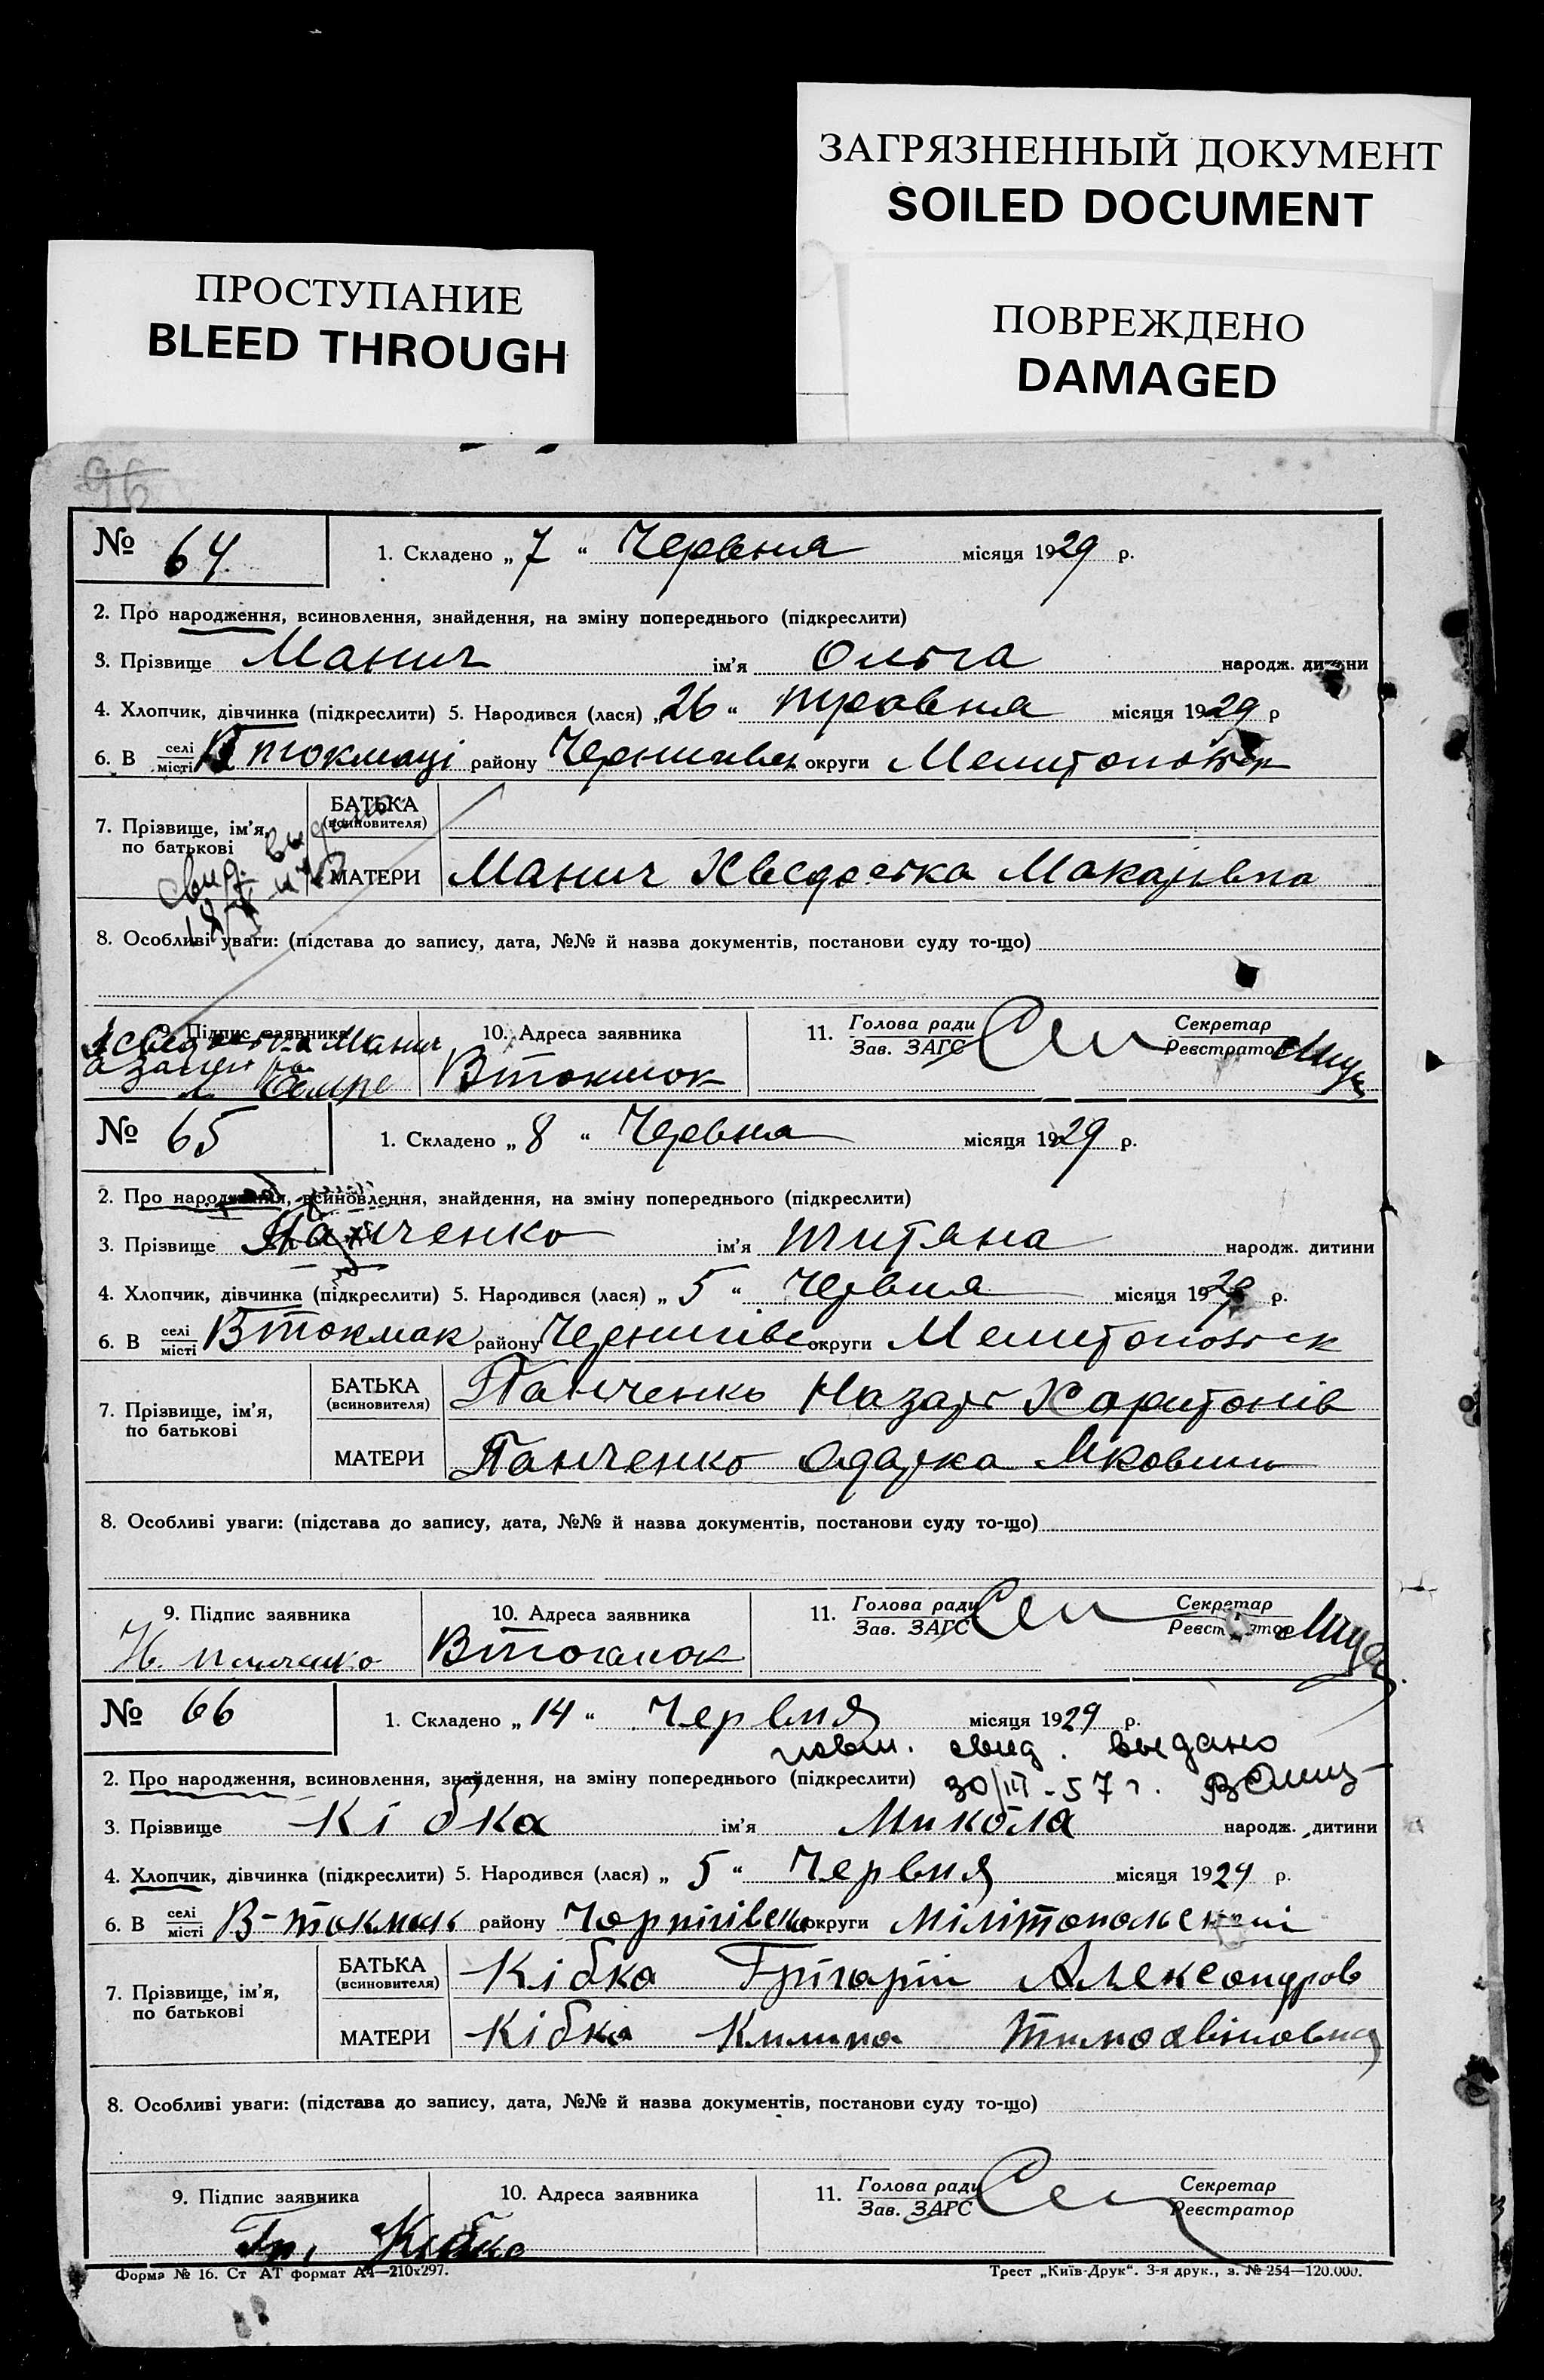 ЗАГРЯЗНЕННЫЙ ДОКУМЕНТ
SOILED DOCUMENT
ПРОСТУПАНИЕ
BLEED THROUGH
ПОВРЕЖДЕНО
DAMAGED
96
№ 64 1. Складено „ 7 “ Червня місяця 1929 р.
2. Про народження, всиновлення, знайдення, на зміну попереднього (підкреслити)
3. Прізвище Манич ім'я Ольга народж. дитини
4. Хлопчик, дівчинка (підкреслити) 5. Народився (лася) „ 26 “ травня місяця 1929 р
6. В селі місті Втокмаці району Чернигівск округи Мелитопольск
7. Прізвище, ім'я, по батькові БАТЬКА (всиновителя)
свид. выдано
МАТЕРИ Манич Хведоска Макарівна
8. Особливі уваги: (підстава до запису, дата, №№ й назва документів, постанови суду то-що)
9. Підпис заявника 10. Адреса заявника 11. Голова ради Зав. ЗАГС Секретар Реєстратор
Манич Втокмак
№ 65 1. Складено „ 8 “ Червня місяця 1929 р.
2. Про народження, всиновлення, знайдення, на зміну попереднього (підкреслити)
3. Прізвище Панченко ім'я Титяна народж. дитини
4. Хлопчик, дівчинка (підкреслити) 5. Народився (лася) „ 5 “ Червня місяця 1929 р.
6. В селі місті Втокмак району Чернигівс округи Мелитопольск
7. Прізвище, ім'я, по батькові БАТЬКА (всиновителя) Панченко Назарь Харитонів
МАТЕРИ Панченко Одарка Яковина
8. Особливі уваги: (підстава до запису, дата, №№ й назва документів, постанови суду то-що)
9. Підпис заявника 10. Адреса заявника 11. Голова ради Зав. ЗАГС Секретар Реєстратор
Н. Панченко Втокмак
№ 66 1. Складено „ 14 “ Червня місяця 1929 р.
повт. свид. выдано
2. Про народження, всиновлення, знайдення, на зміну попереднього (підкреслити) 30/III-57 г.
3. Прізвище Кібка ім'я Микола народж. дитини
4. Хлопчик, дівчинка (підкреслити) 5. Народився (лася) „ 5 “ Червня місяця 1929 р.
6. В селі місті В-токмак району Чорнігівська округи Мілітопольської
7. Прізвище, ім'я, по батькові БАТЬКА (всиновителя) Кібка Грігорій Александров
МАТЕРИ Кібка Килина
8. Особливі уваги: (підстава до запису, дата, №№ й назва документів, постанови суду то-що)
9. Підпис заявника 10. Адреса заявника 11. Голова ради Зав. ЗАГС Секретар Реєстратор
Гр. Кібка
Форма № 16. Ст АТ формат А4—210х297. Трест „Київ-Друк“. 3-я друк., з. № 254—120.000.